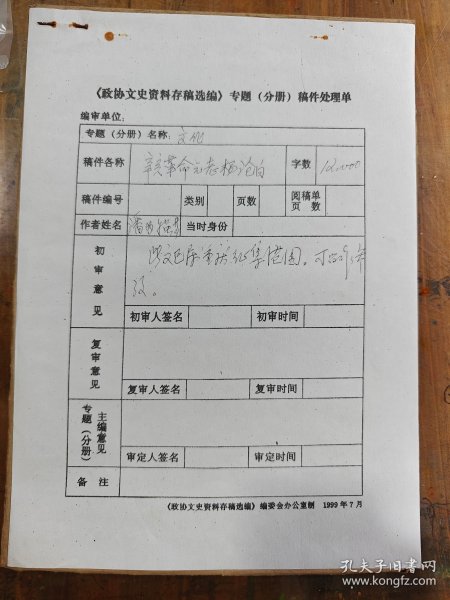 《政协文史资料存稿选编》专题（分册）稿件处理单
编审单位：
专题（分册）名称：文化
稿件各称 辛亥革命 字数 12000
稿件编号 类别 页数 阅稿单页数
作者姓名 当时身份
初审意见 征集范围。
初审人签名 初审时间
复审意见
复审人签名 复审时间
专题（分册）主编意见
审定人签名 审定时间
备注
《政协文史资料存稿选编》编委会办公室制 1999年7月
孔夫子旧书网
www.kongfz.com